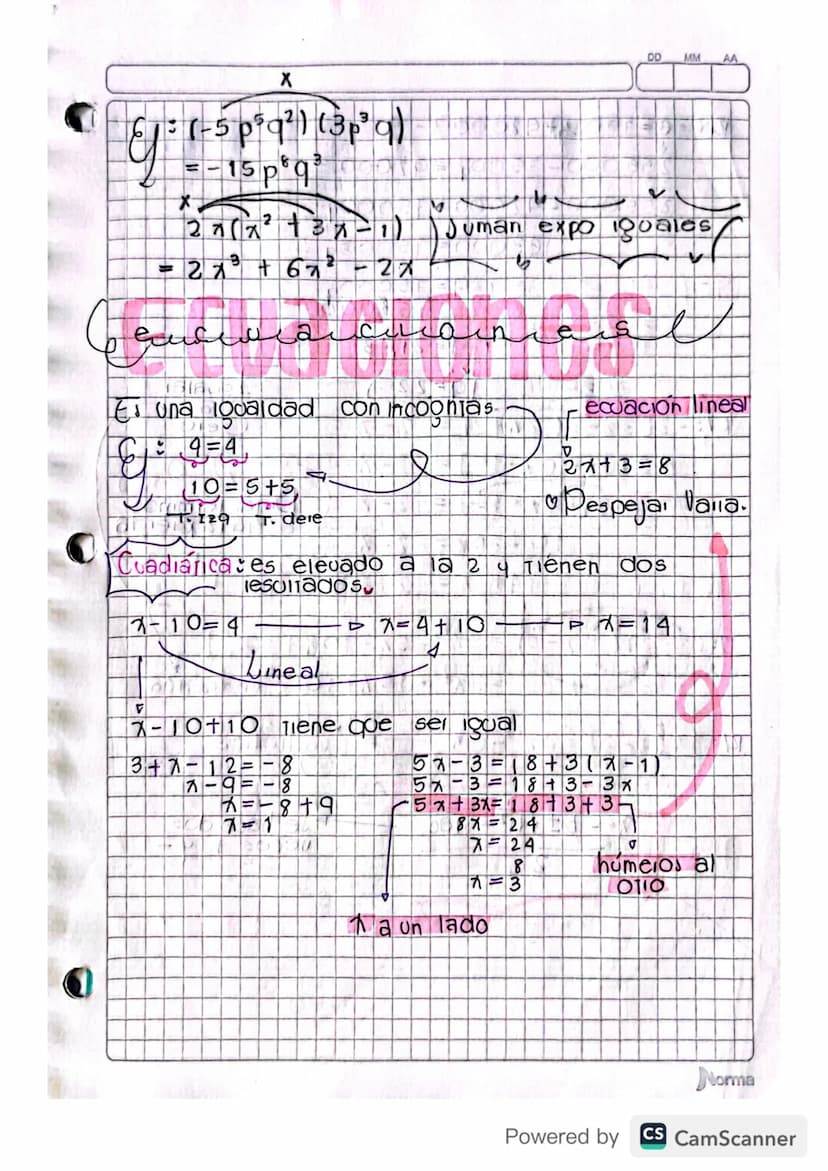 DD MM AA
x
Ej: (-5p⁵q²) (3p³q)
= -15p⁸q³
x
2x(x² + 3x - 1) Suman expo iguales
= 2x³ + 6x² - 2x
Ecuaciones
ecuaciones
Es una igualdad con incognias
ecuación lineal
Ej: 4=4
2x+3=8
10=5+5
Despejar Varia.
T. izq T. dere
Cuadrárica: es elevado a la 2 y Tienen dos
resultados.
x-10=4 → x=4+10 → x=14
Lineal
x-10+10 Tiene que ser igual
3+x-12=-8
x-9=-8
x=-8+9
x=1
5x-3=18+3(x-1)
5x-3=18+3-3x
5x+3x=18+3+3
8x=24
x=24
8
x=3
números al
otro
x a un lado
Norma
Powered by CS CamScanner